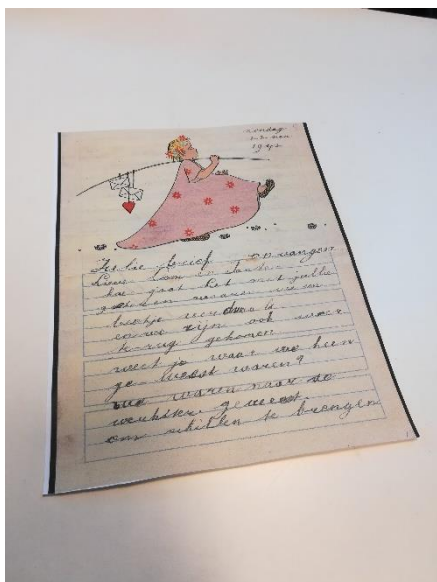 zondag
1942
brief ontvangen
Lieve oom en tante
hoe gaat het met jullie
beetje verdwa
en we zijn ook weer
te rug gekomen
weet je waar we heen
ge weest waren?
we waren naar de
geweest.
om schillen te brengen